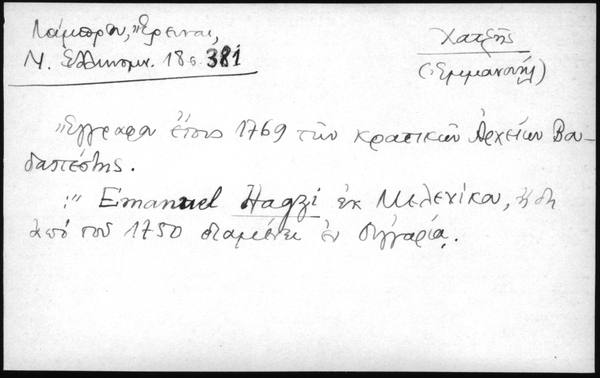 Λάμπρου, Ἔρευναι,
Ν. Ἑλληνομν. 18 σ. 381
Χατζῆς
(Ἐμμανουήλ)
Ἔγγραφον ἔτους 1769 τῶν κρατικῶν Ἀρχείων Βου-
δαπέστης.
:" Emanuel Hagzi ἐκ Μελενίκου, ἤδη
ἀπό τοῦ 1750 διαμένει ἐν Οὑγγαρίᾳ.